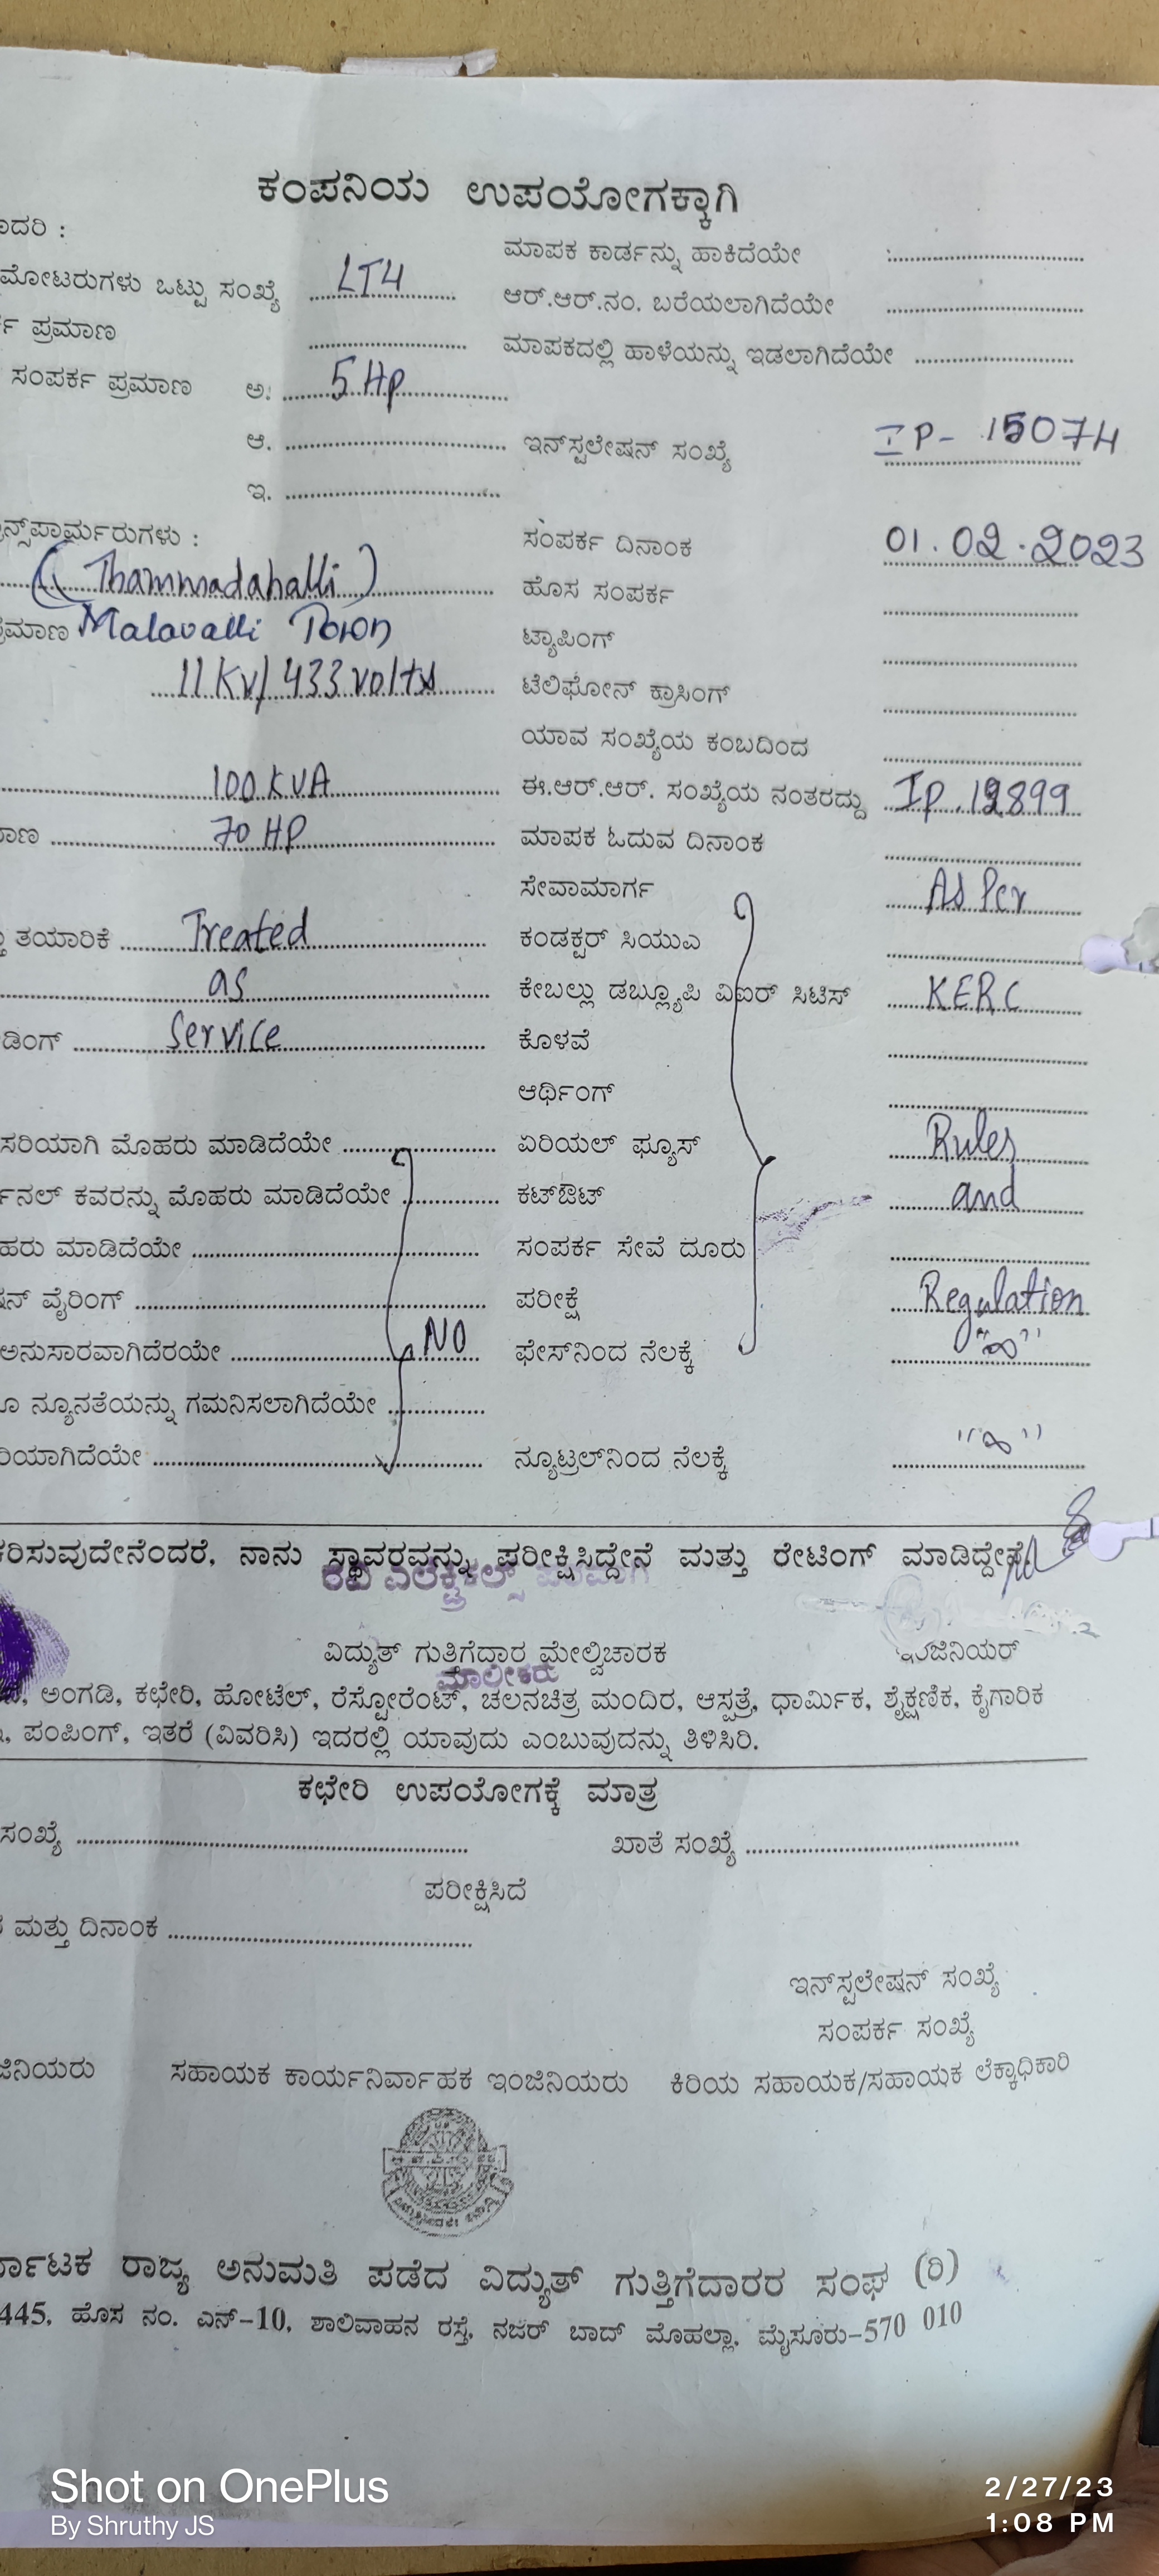 ಕಂಪನಿಯ ಉಪಯೋಗಕ್ಕಾಗಿ
ಾದರಿ :
ಮಾಪಕ ಕಾರ್ಡನ್ನು ಹಾಕಿದೆಯೇ :
ಮೋಟರುಗಳು ಒಟ್ಟು ಸಂಖ್ಯೆ LT4 ಆರ್.ಆರ್.ನಂ. ಬರೆಯಲಾಗಿದೆಯೇ
ರ್ಕ ಪ್ರಮಾಣ ಮಾಪಕದಲ್ಲಿ ಹಾಳೆಯನ್ನು ಇಡಲಾಗಿದೆಯೇ
ಸಂಪರ್ಕ ಪ್ರಮಾಣ ಅ: 5 Hp
ಆ. ಇನ್‌ಸ್ಟಲೇಷನ್ ಸಂಖ್ಯೆ IP- 15074
ಇ.
ನ್ಸ್‌ಪಾರ್ಮರುಗಳು : ಸಂಪರ್ಕ ದಿನಾಂಕ 01.02.2023
(Thammadahalli) ಹೊಸ ಸಂಪರ್ಕ
್ರಮಾಣ Malavalli Town ಟ್ಯಾಪಿಂಗ್
11 KV/ 433 volts ಟೆಲಿಫೋನ್ ಕ್ರಾಸಿಂಗ್
ಯಾವ ಸಂಖ್ಯೆಯ ಕಂಬದಿಂದ
100 KVA ಈ.ಆರ್.ಆರ್. ಸಂಖ್ಯೆಯ ನಂತರದ್ದು IP.12899
ಮಾಣ 70 HP ಮಾಪಕ ಓದುವ ದಿನಾಂಕ
ಸೇವಾಮಾರ್ಗ As Per
ತಯಾರಿಕೆ Treated ಕಂಡಕ್ಟರ್ ಸಿಯುಎ
as ಕೇಬಲ್ಲು ಡಬ್ಲ್ಯೂಪಿ ವಿಐರ್ ಸಿಟಿಸ್ KERC
ಡಿಂಗ್ Service ಕೊಳವೆ
ಆರ್ಥಿಂಗ್
ಸರಿಯಾಗಿ ಮೊಹರು ಮಾಡಿದೆಯೇ ಏರಿಯಲ್ ಫ್ಯೂಸ್ Rules
ರ್ಿನಲ್ ಕವರನ್ನು ಮೊಹರು ಮಾಡಿದೆಯೇ ಕಟ್‌ಔಟ್ and
ಹರು ಮಾಡಿದೆಯೇ ಸಂಪರ್ಕ ಸೇವೆ ದೂರು
ಷನ್ ವೈರಿಂಗ್ ಪರೀಕ್ಷೆ Regulation
ಅನುಸಾರವಾಗಿದೆರಯೇ NO ಫೇಸ್‌ನಿಂದ ನೆಲಕ್ಕೆ "∞"
ನ್ಯೂನತೆಯನ್ನು ಗಮನಿಸಲಾಗಿದೆಯೇ
ರಿಯಾಗಿದೆಯೇ ನ್ಯೂಟ್ರಲ್‌ನಿಂದ ನೆಲಕ್ಕೆ "∞"
ಕರಿಸುವುದೇನೆಂದರೆ, ನಾನು ಸ್ಥಾವರವನ್ನು ಪರೀಕ್ಷಿಸಿದ್ದೇನೆ ಮತ್ತು ರೇಟಿಂಗ್ ಮಾಡಿದ್ದೇನೆ.
ಎಲೆಕ್ಟ್ರಿಕಲ್ಸ್
ವಿದ್ಯುತ್ ಗುತ್ತಿಗೆದಾರ ಮೇಲ್ವಿಚಾರಕ ಇಂಜಿನಿಯರ್
ಮಾಲೀಕರು
ಅಂಗಡಿ, ಕಛೇರಿ, ಹೋಟೆಲ್, ರೆಸ್ಟೋರೆಂಟ್, ಚಲನಚಿತ್ರ ಮಂದಿರ, ಆಸ್ಪತ್ರೆ, ಧಾರ್ಮಿಕ, ಶೈಕ್ಷಣಿಕ, ಕೈಗಾರಿಕ
, ಪಂಪಿಂಗ್, ಇತರೆ (ವಿವರಿಸಿ) ಇದರಲ್ಲಿ ಯಾವುದು ಎಂಬುವುದನ್ನು ತಿಳಿಸಿರಿ.
ಕಛೇರಿ ಉಪಯೋಗಕ್ಕೆ ಮಾತ್ರ
ಸಂಖ್ಯೆ ಖಾತೆ ಸಂಖ್ಯೆ
ಪರೀಕ್ಷಿಸಿದೆ
ಮತ್ತು ದಿನಾಂಕ
ಇನ್‌ಸ್ಟಲೇಷನ್ ಸಂಖ್ಯೆ
ಸಂಪರ್ಕ ಸಂಖ್ಯೆ
ಜಿನಿಯರು ಸಹಾಯಕ ಕಾರ್ಯನಿರ್ವಾಹಕ ಇಂಜಿನಿಯರು ಕಿರಿಯ ಸಹಾಯಕ/ಸಹಾಯಕ ಲೆಕ್ಕಾಧಿಕಾರಿ
ರ್ನಾಟಕ ರಾಜ್ಯ ಅನುಮತಿ ಪಡೆದ ವಿದ್ಯುತ್ ಗುತ್ತಿಗೆದಾರರ ಸಂಘ (ರಿ)
445, ಹೊಸ ನಂ. ಎನ್-10, ಶಾಲಿವಾಹನ ರಸ್ತೆ, ನಜರ್ ಬಾದ್ ಮೊಹಲ್ಲಾ, ಮೈಸೂರು-570 010
Shot on OnePlus
By Shruthy JS
2/27/23
1:08 PM